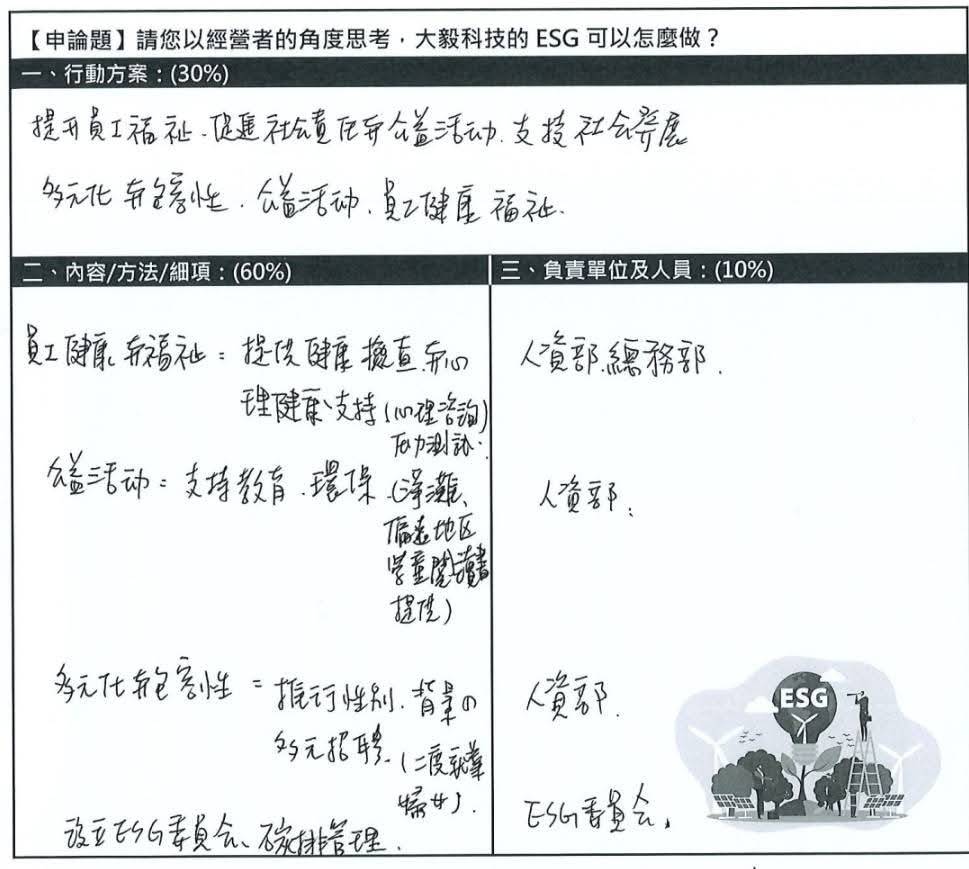 【申論題】請您以經營者的角度思考，大毅科技的 ESG 可以怎麼做？
一、行動方案：(30%)
提升員工福祉、促進社会責任与公益活动、支持社会發展
多元化与包容性、公益活动、員工健康福祉.
二、內容/方法/細項：(60%)
員工健康与福祉：提供健康檢查与心
理健康支持(心理咨詢)
压力測試.
公益活动：支持教育、環保(淨灘、
偏远地区
学童閱讀書
提供)
多元化与包容性：推行性別、背景の
多元招聘、(二度就業
婦女).
設立ESG委員会、碳排管理.
三、負責單位及人員：(10%)
人資部、總務部.
人資部.
人資部.
ESG委員会.
ESG